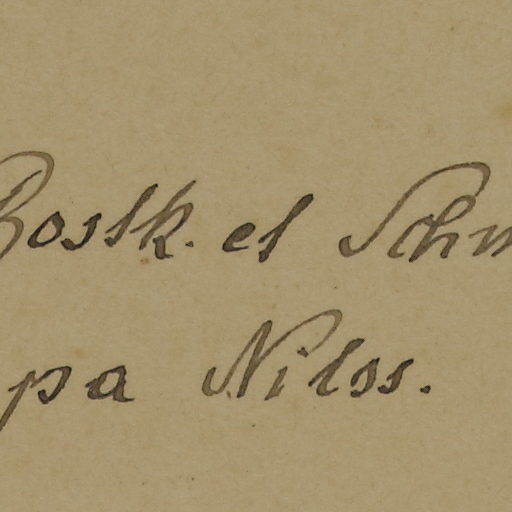 Rostk. et Schm
pa Nilss.